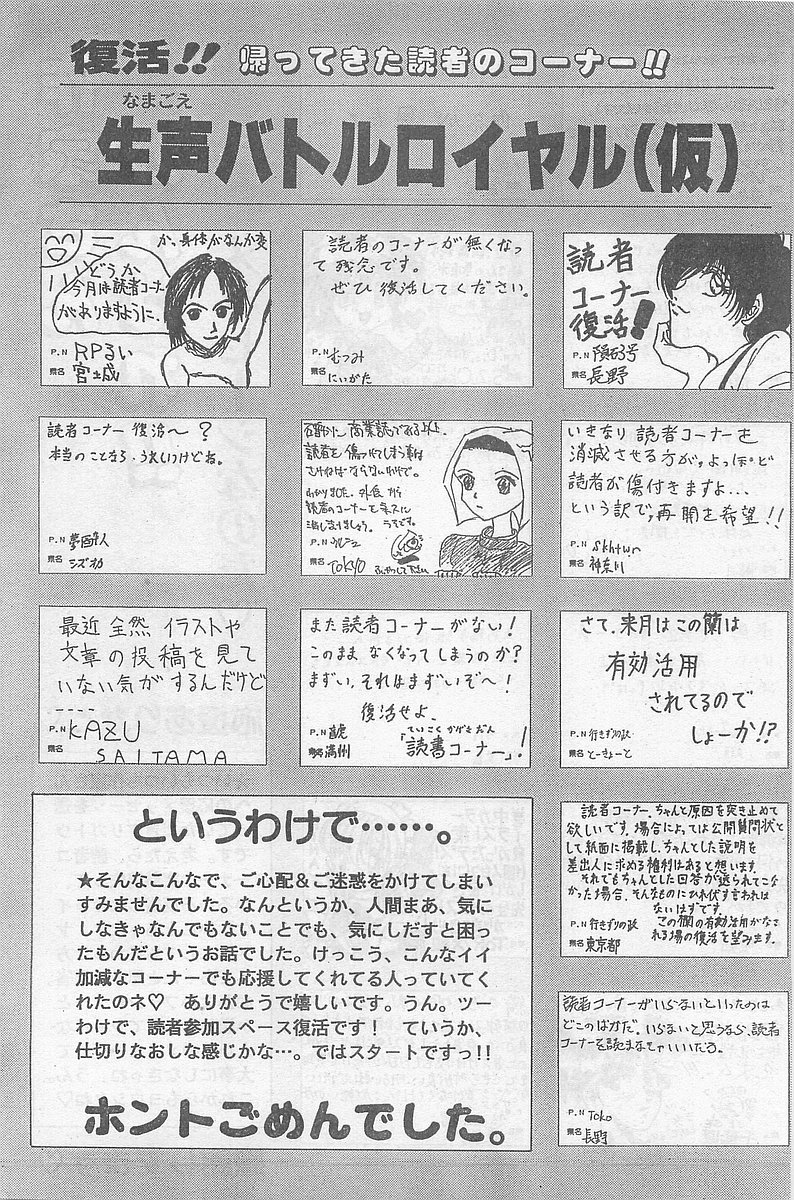 復活!! 帰ってきた読者のコーナー!!
なまごえ
生声バトルロイヤル(仮)
か、身体がなんか変
どうか
今月は読者コーナー
がありますように。
P.N RPるい
県名 宮土成
読者のコーナーが無くなっ
て残念です。
ぜひ復活してください。
P.N むつみ
県名 にいがた
読者
コーナー
復活!
P.N 隕石3号
県名 長野
読者コーナー復活〜?
本当のことなら、うれしいけどね。
P.N
県名 シズオカ
商業誌である以上、
読者を傷つけてしまう事は
さけねばならないわけで。
わかりました。
読者のコーナーを
消しましょう。うそです。
P.N
県名 TOKYO
いきなり読者コーナーを
消滅させる方が、よっぽど
読者が傷付きますよ...
という訳で、再開を希望!!
P.N skhtwn
県名 神奈川
最近全然イラストや
文章の投稿を見て
いない気がするんだけど
----
P.N KAZU
県名 SAITAMA
また読者コーナーがない!
このままなくなってしまうのか?
まずい、それはまずいぞ〜!
復活せよ、
ていこくかげきだん
「読書コーナー」!
P.N
県名 満州
さて、来月はこの蘭は
有効活用
されてるので
しょーか!?
P.N 行きずりの政
県名 とーきょーと
というわけで……。
★そんなこんなで、ご心配&ご迷惑をかけてしまい
すみませんでした。なんというか、人間まあ、気に
しなきゃなんでもないことでも、気にしだすと困っ
たもんだというお話でした。けっこう、こんなイイ
加減なコーナーでも応援してくれてる人っていてく
れたのネ♡ ありがとうで嬉しいです。うん。ツー
わけで、読者参加スペース復活です! ていうか、
仕切りなおしな感じかな…。ではスタートですっ!!
ホントごめんでした。
読者コーナー、ちゃんと原因を突き止めて
欲しいです。場合によっては公開質問状と
して紙面に掲載し、ちゃんとした説明を
差出人に求める権利はあると想います。
それでもちゃんとした回答が送られてこな
かった場合、そんなものにひれ伏す言われは
ないはずです。
この欄の有効活用がなさ
れる場の復活を望みます。
P.N 行きずりの政
県名 東京都
読者コーナーがいらないといったのは
どこのばかだ。いらないと思うなら、読者
コーナーを読まなきゃいいだろ。
P.N Toko
県名 長野